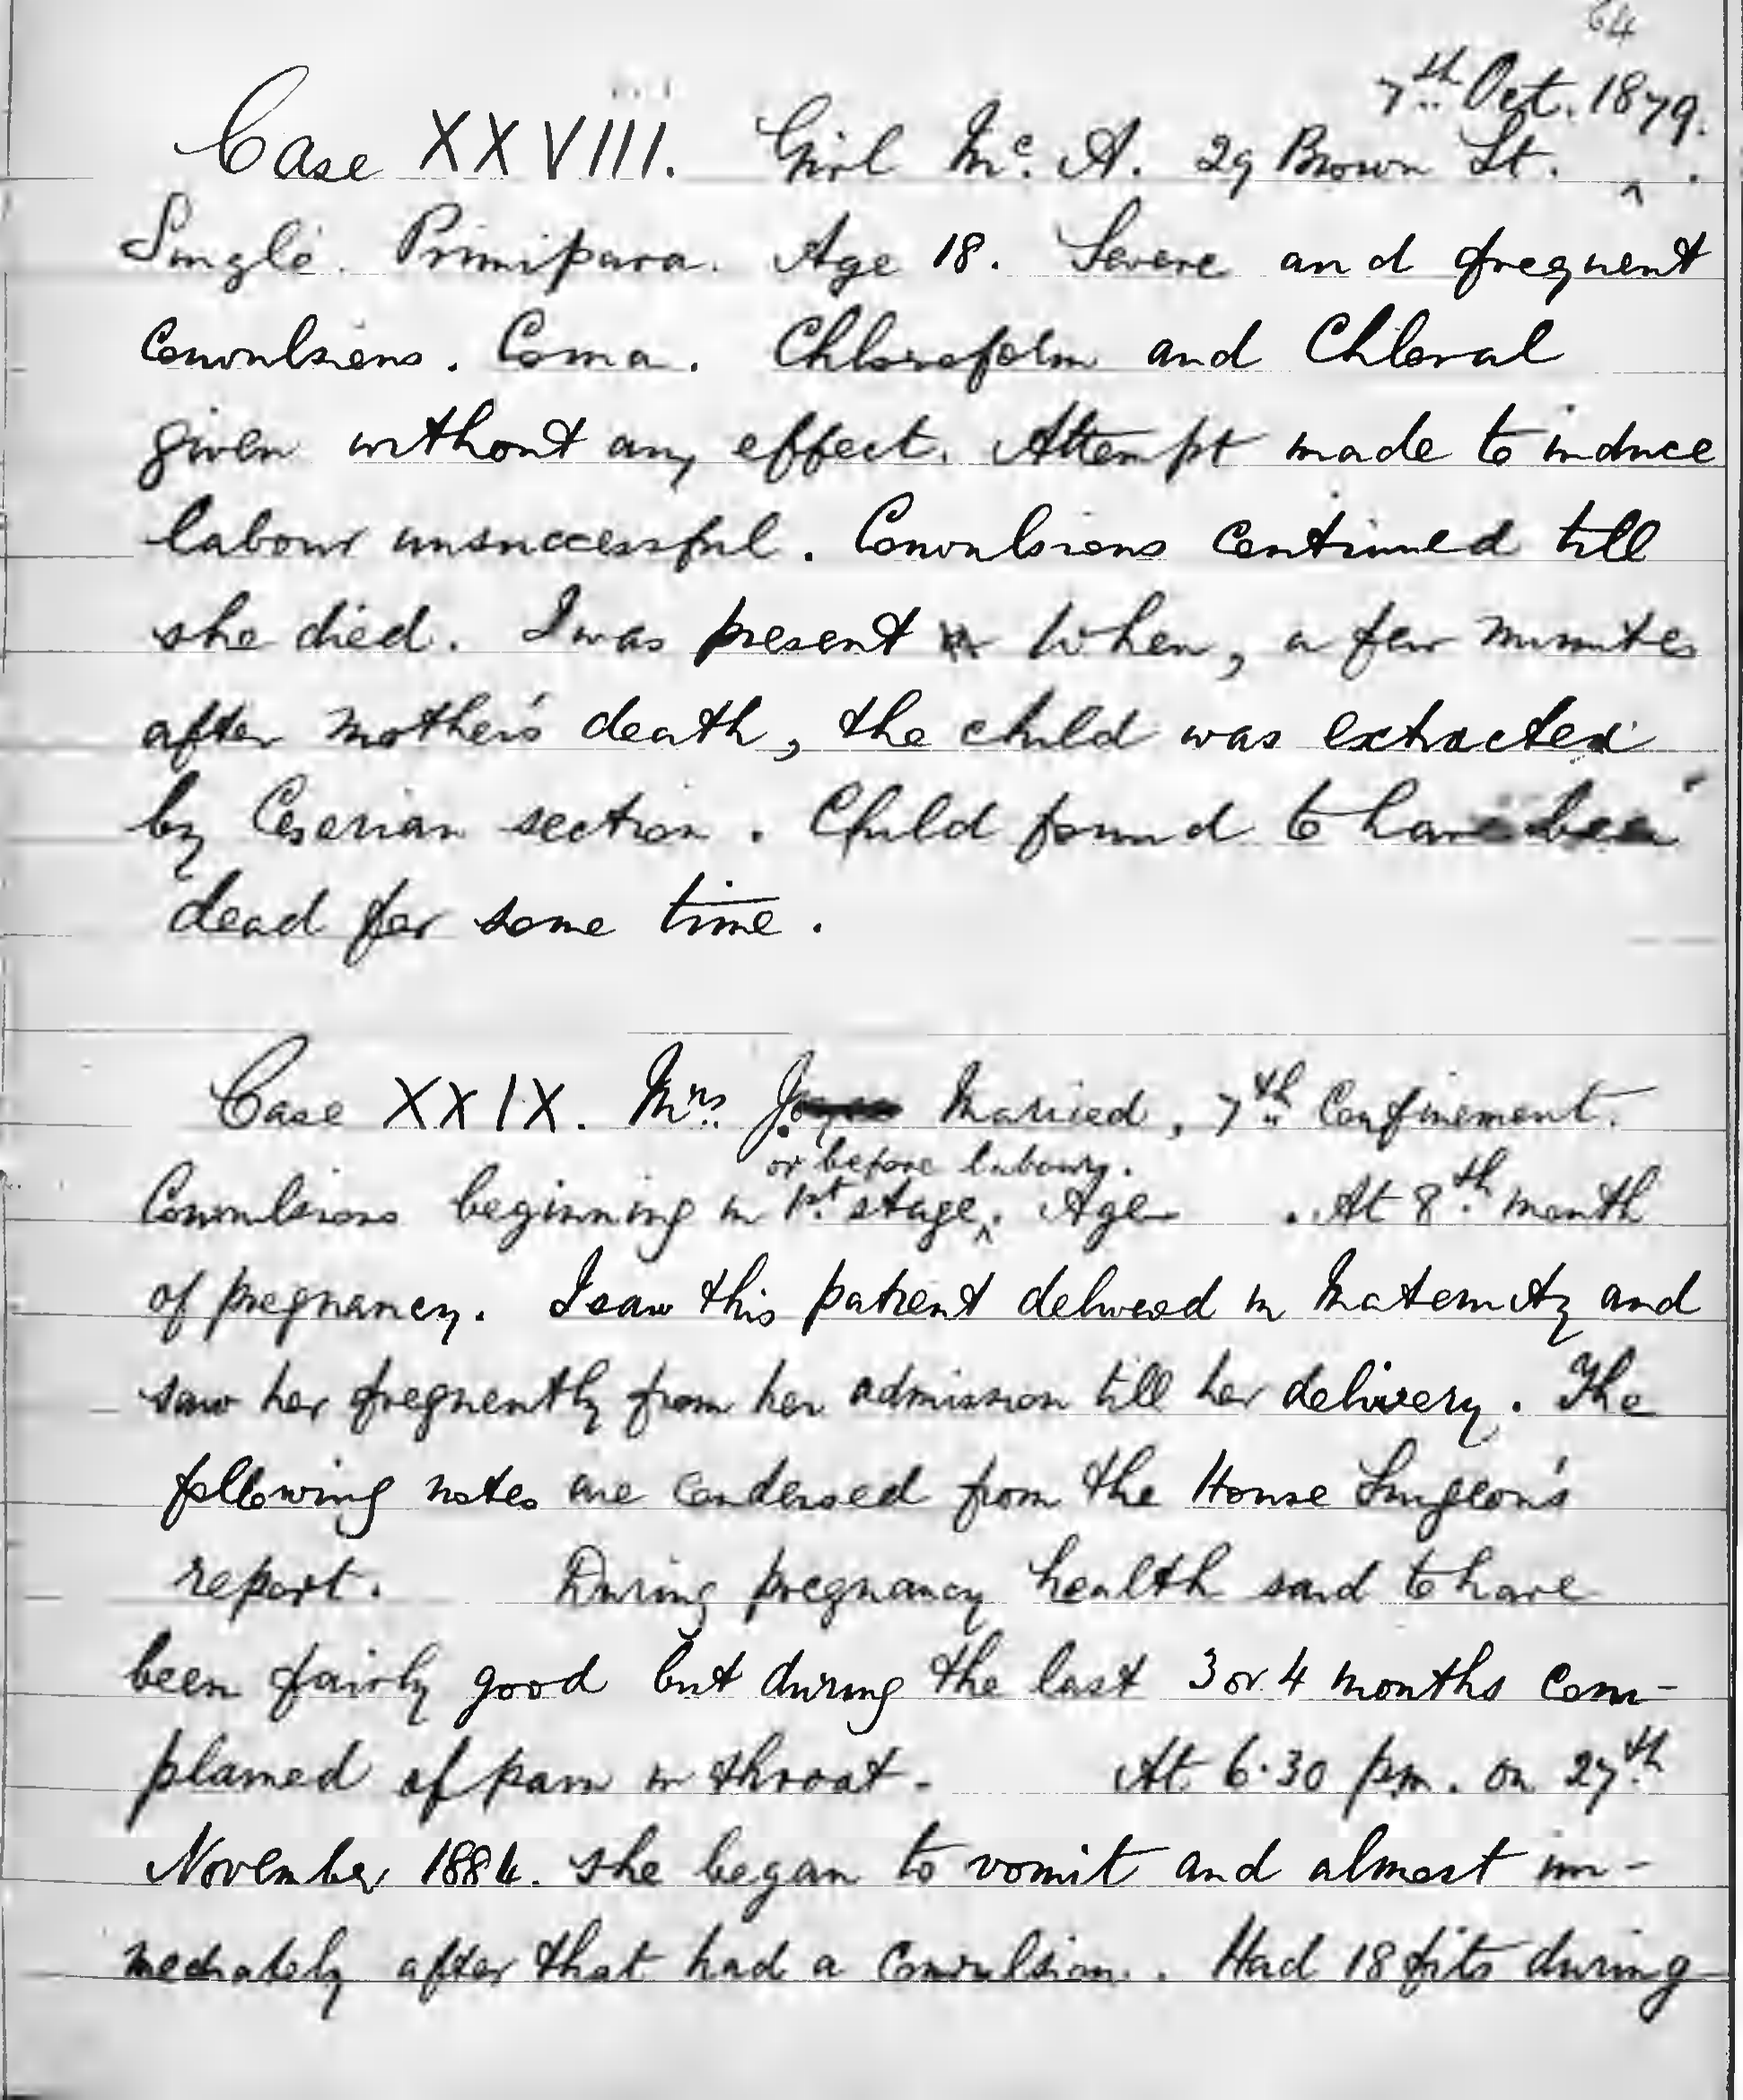 64
7th Oct. 1879.
Case XXVIII. Girl Mc. A. 29 Brown St. ^ .
Single. Primipara. Age 18. Severe and frequent
Convulsions. Coma. Chloroform and Chloral
given without any effect. Attempt made to induce
labour unsuccessful. Convulsions continued till
she died. I was present when, a few minutes
after mother's death, the child was extracted
byCeserian section. Child found to have been
dead for some time.
Case XXIX. Mrs. J. Married, 7th Confinement.
or before labour.
Convulsions beginning in 1st stage ^. Age . At 8th month
of pregnancy. I saw this patient delivered in Maternity and
saw her frequently from her admission till her delivery. The
following notes are condensed from the House Surgeon's
report. During pregnancy health said to have
been fairly good but during the last 3 or 4 months com-
plained of pain in throat. At 6.30 pm. on 27th
November 1884. she began to vomit and almost im-
mediately after that had a convulsion. Had 18 fits during